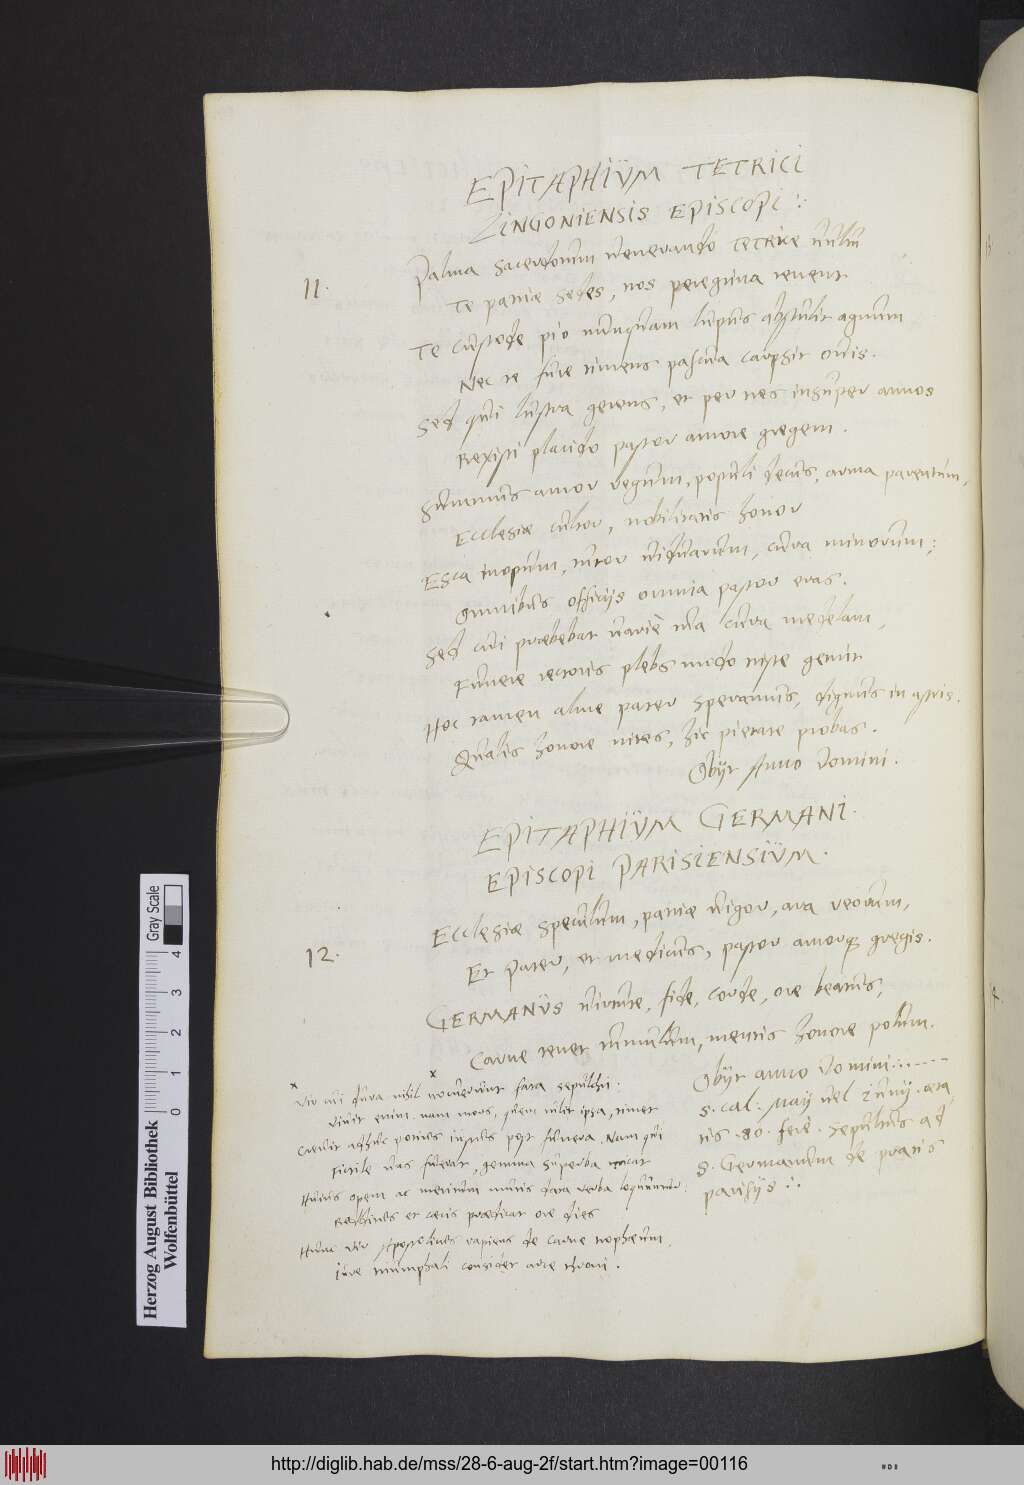 EPITAPHIUM TETRICI
LINGONIENSIS EPISCOPI
11.
Palma sacerdotum venerando Tetrice cultu
Te patriæ sedes, nos peregrina tenent
Te custode pio nunquam lupus abstulit agnum
Nec te fure timens pascua carpsit ovis.
Sed qui lustra gerens, et per tres insuper annos
Rexisti placido pastor amore gregem.
Summus amor regum, populi decus, arma parentum,
Ecclesiæ cultor, nobilitatis honor
Esca inopum, tutor viduarum, cura minorum;
Omnibus officijs omnia pastor eras.
Sed cui præbebat variè tua cura medelam,
Funere rectoris plebs modo triste gemit
Hoc tamen alme pater speramus, dignus in astris.
Qualis honore nites, hic pietate probas.
Obijt Anno Domini.
EPITAPHIUM GERMANI
EPISCOPI PARISIENSIUM.
12.
Ecclesiæ speculum, patriæ vigor, ara reorum,
Et pater, et medicus, pastor amorq; gregis.
GERMANUS virtute, fide, corde, ore beatus,
Carne tenet tumulum, mentis honore polum.
Obijt anno Domini
5. cal: Maij vel Iunij. æta
tis .80. ferè. sepultus ad
S. Germanum de pratis
parisijs
Vir cui dura nihil nocuerunt fata sepulchri.
vivit enim. nam mors, quem tulit ipsa, timet
Crevit adhuc potius iustus post funera. Nam qui
fictile vas fuerat, gemma superba micat
Huius opem ac meritum mutis data verba loquuntur
Redditus et cæcis prædicat ore dies
Hunc vir Apostolicus rapiens de carne trophæum.
Iure triumphali considet arce throni.
Herzog August Bibliothek
Wolfenbüttel
Gray Scale
0 1 2 3 4
http://diglib.hab.de/mss/28-6-aug-2f/start.htm?image=00116